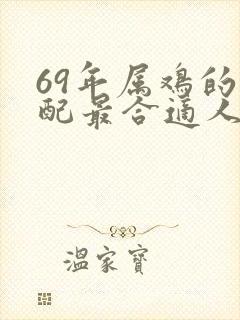 69年属鸡的
配最合适人
温家宝